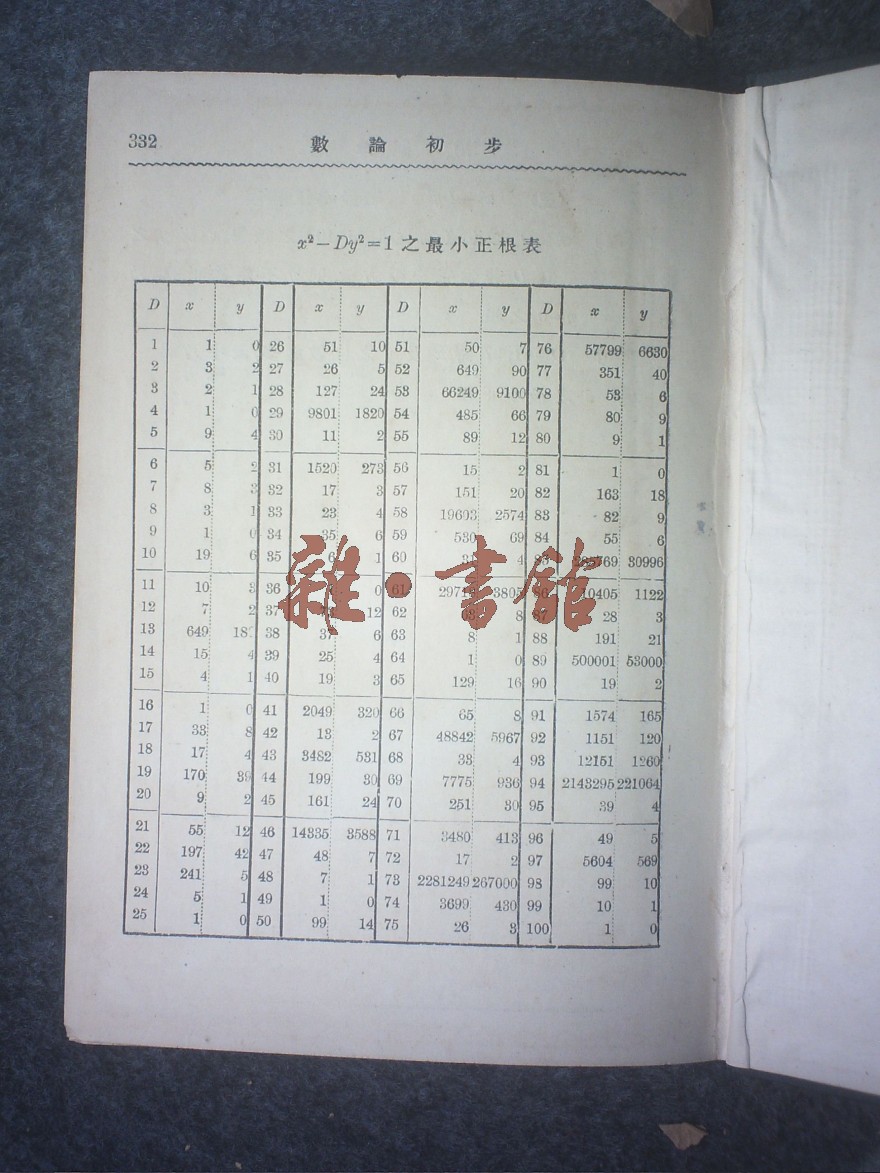 332 數論初步
x²－Dy²＝1之最小正根表
D x y D x y D x y D x y
1 1 0 26 51 10 51 50 7 76 57799 6630
2 3 2 27 26 5 52 649 90 77 351 40
3 2 1 28 127 24 53 66249 9100 78 53 6
4 1 0 29 9801 1820 54 485 66 79 80 9
5 9 4 30 11 2 55 89 12 80 9 1
6 5 2 31 1520 273 56 15 2 81 1 0
7 8 3 32 17 3 57 151 20 82 163 18
8 3 1 33 23 4 58 19603 2574 83 82 9
9 1 0 34 35 6 59 530 69 84 55 6
10 19 6 35 6 1 60 31 4 30996
11 10 3 36 0 61 1122
12 7 2 37 12 62 8 28 3
13 649 38 37 6 63 8 1 88 191 21
14 15 4 39 25 4 64 1 0 89 500001 53000
15 4 1 40 19 3 65 129 16 90 19 2
16 1 0 41 2049 320 66 65 8 91 1574 165
17 33 8 42 13 2 67 48842 5967 92 1151 120
18 17 4 43 3482 531 68 33 4 93 12151 1260
19 170 39 44 199 30 69 7775 936 94 2143295 221064
20 9 2 45 161 24 70 251 30 95 39 4
21 55 12 46 14335 3588 71 3480 413 96 49 5
22 197 42 47 48 7 72 17 2 97 5604 569
23 241 5 48 7 1 73 2281249 267000 98 99 10
24 5 1 49 1 0 74 3699 430 99 10 1
25 1 0 50 99 14 75 26 3 100 1 0
雜·書館